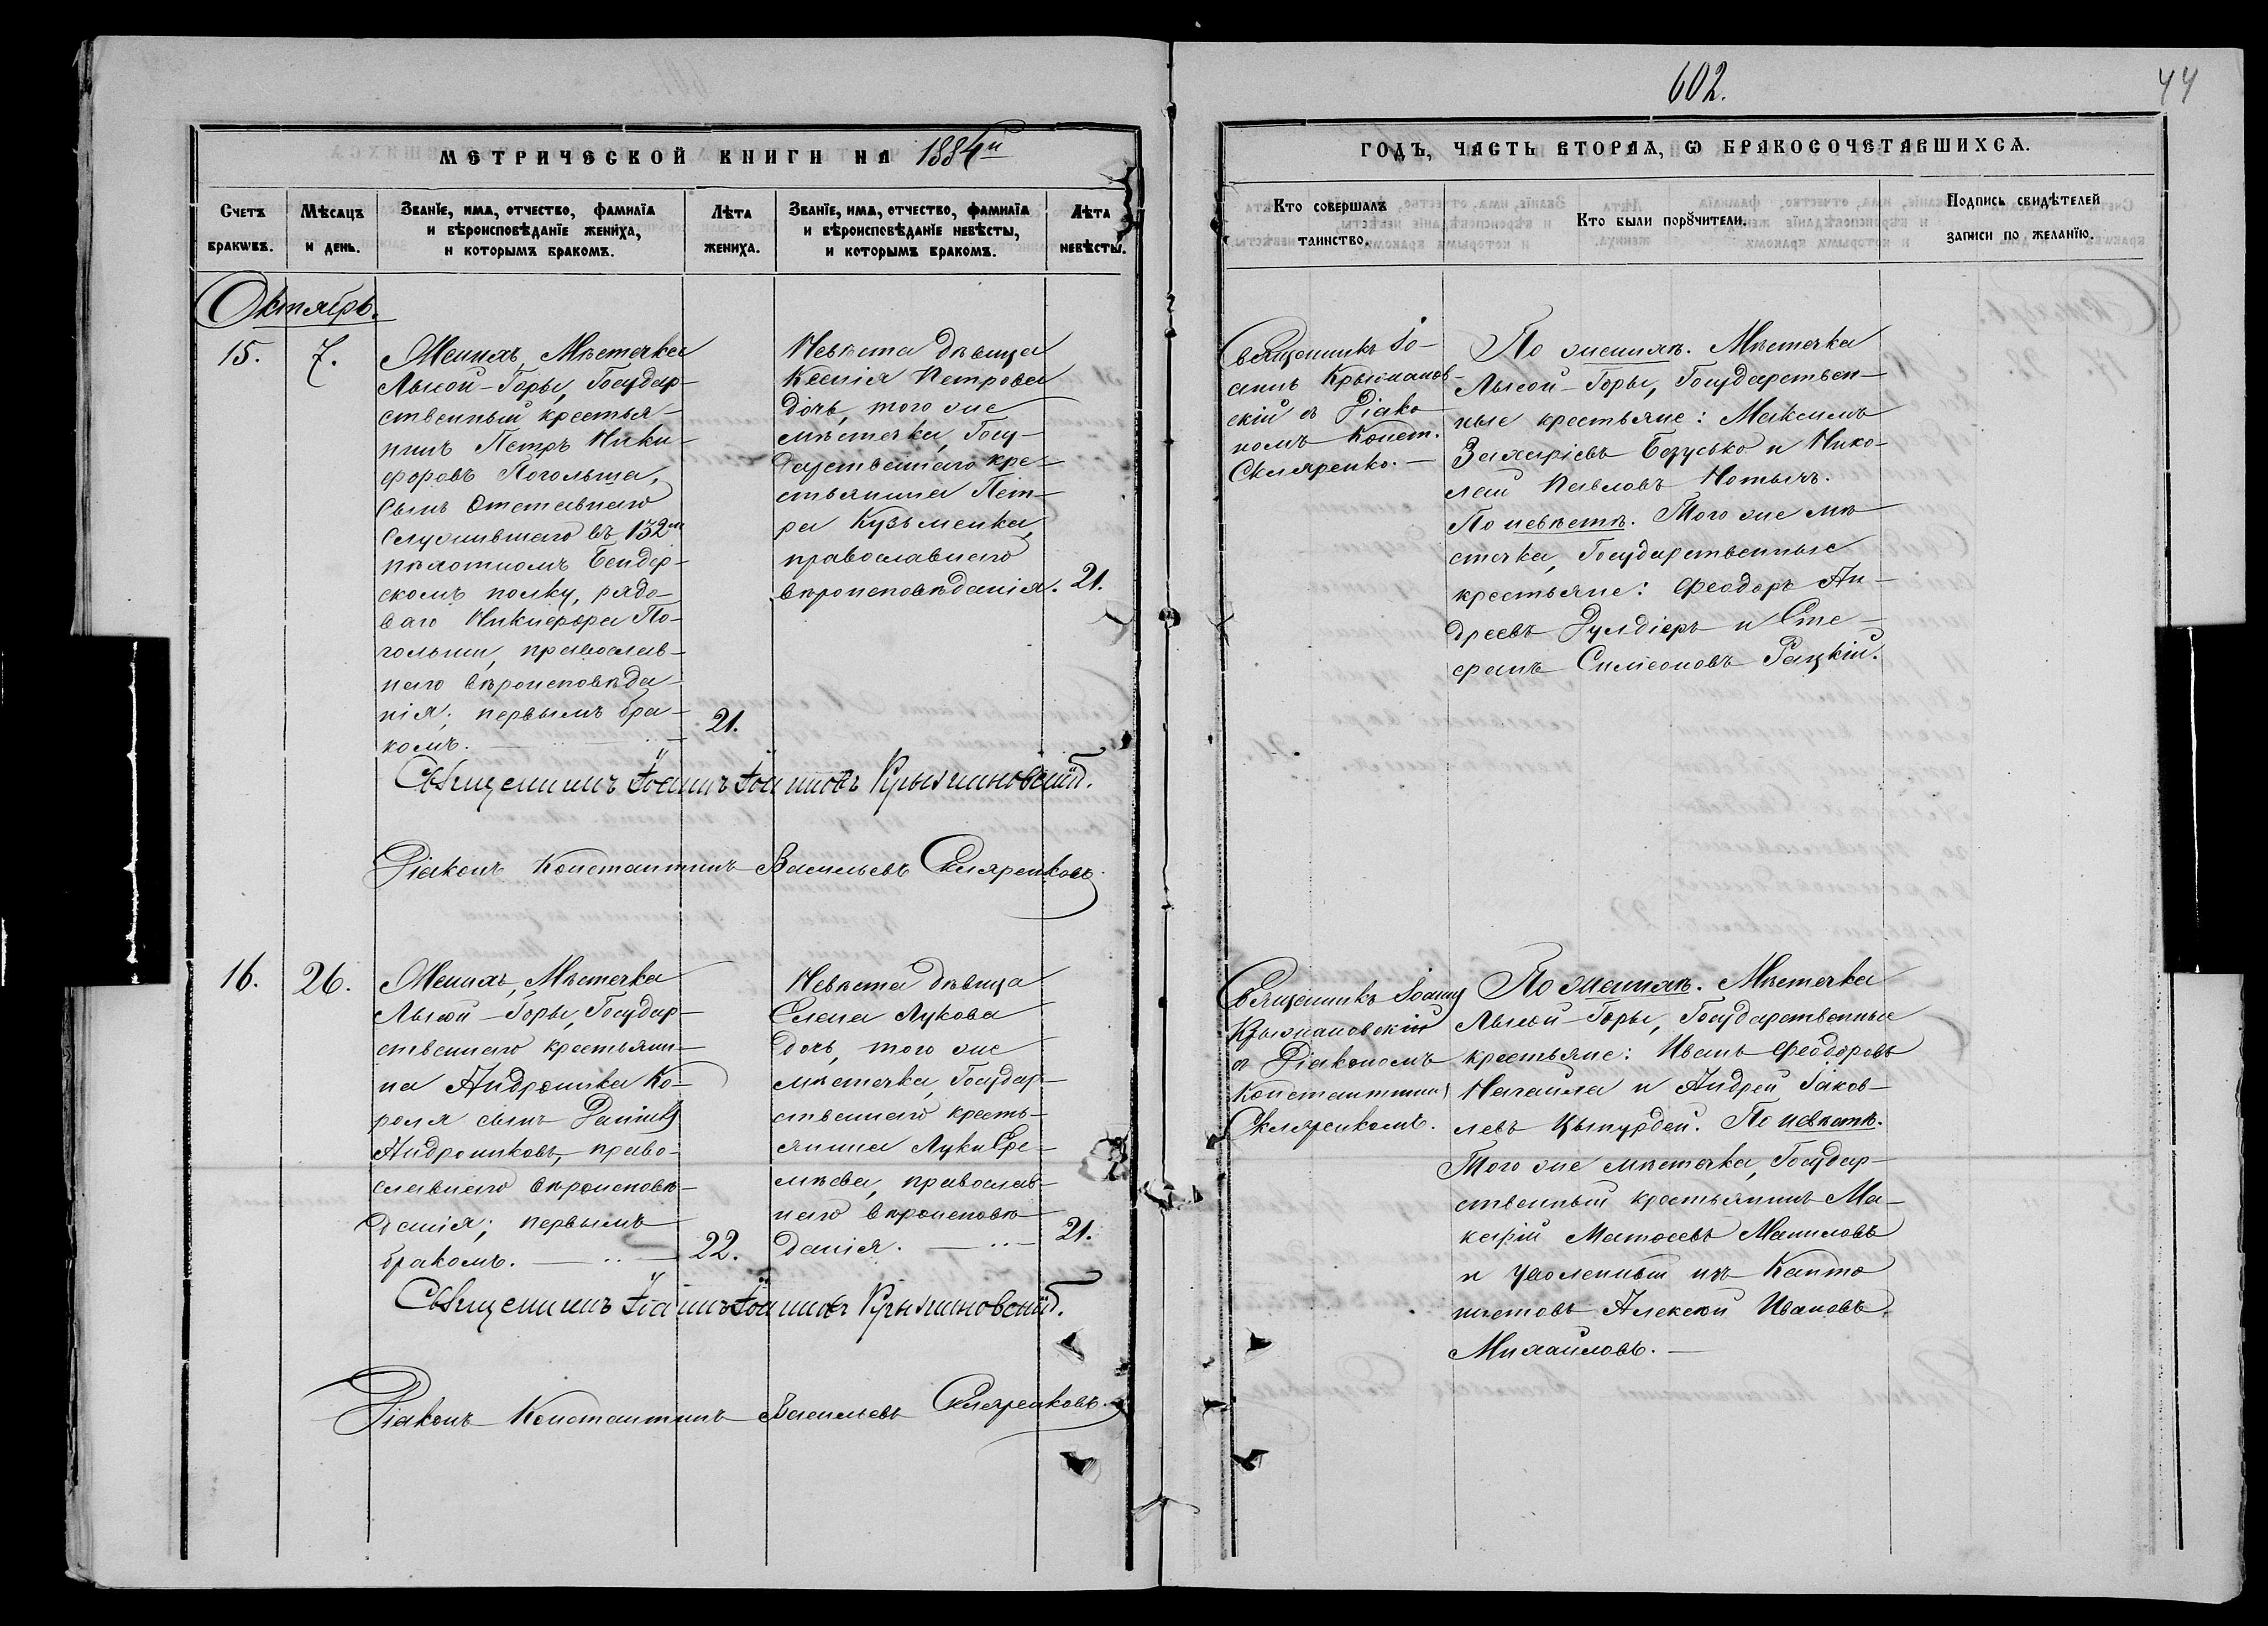 602.
44
МЕТРИЧЕСКОЙ КНИГИ НА 1884й
ГОДЪ, ЧАСТЬ ВТОРАѦ, Ѡ БРАКОСОЧЕТАВШИХСѦ.
Счетъ браковъ.
Мѣсяцъ и день.
Званїе, имѧ, отчество, фамилїа
и вѣроисповѣданїе жениха,
и которымъ бракомъ.
Лѣта
жениха.
Званїе, имѧ, отчество, фамилїа
и вѣроисповѣданїе невѣсты,
и которымъ бракомъ.
Лѣта
невѣсты.
Кто совершалъ
таинство.
Кто были порꙋчители.
Подпись свидѣтелей
записи по желанїю.
Октябрь.
15.
7.
Женихъ, Мѣстечка
Лысой-Горы, Государ-
ственный крестья-
нинъ Петръ Ники-
форовъ Погольша,
сынъ отставнаго
служившаго въ 132м
пѣхотномъ Бендер-
скомъ полку, рядо-
ваго Никифора По-
гольши, православ-
наго вѣроисповѣда-
нія; первымъ бра-
комъ.
21.
Невѣста дѣвица
Ксенія Петрова
дочь, того же
мѣстечка, Госу-
дарственнаго кре-
стьянина Пет-
ра Кузьменка,
православнаго
вѣроисповѣданія.
21.
Священникъ Іо-
аннъ Крыжанов-
скій съ Діако-
номъ Конст.
Скляренко.
По женихѣ. Мѣстечка
Лысой-Горы, Государствен-
ные крестьяне: Максимъ
Захаріевъ Бозусько и Нико-
лай Павловъ Нотычъ.
По невѣстѣ. Того же мѣ-
стечка, Государственные
крестьяне: Феодоръ Ан-
дреевъ Гулдіеръ и Сте-
фанъ Симеоновъ Рацкій.
Священникъ Іоаннъ Іоанновъ Крыжановскій.
Діаконъ Константинъ Васильевъ Скляренковъ
16.
26.
Женихъ, Мѣстечка
Лысой-Горы, Государ-
ственнаго крестьяни-
на Андроника Ко-
роля сынъ Даніилъ
Андрониковъ, право-
славнаго вѣроисповѣ-
данія; первымъ
бракомъ.
22.
Невѣста дѣвица
Елена Лукова
дочь, того же
мѣстечка, Государ-
ственнаго кресть-
янина Луки Ере-
мѣева, православ-
наго вѣроисповѣ-
данія.
21.
Священникъ Іоаннъ
Крыжановскій
съ Діакономъ
Константин.
Скляренкомъ.
По женихѣ. Мѣстечка
Лысой-Горы, Государственные
крестьяне: Иванъ Феодоровъ
Начайла и Андрей Іаков-
левъ Цыпурдей. По невѣстѣ.
Того же мѣстечка, Государ-
ственный крестьянинъ Ма-
карій Матөеевъ Маниловъ
и уволенный изъ Канто
нистовъ Алексѣй Ивановъ
Михайловъ.
Священникъ Іоаннъ Іоанновъ Крыжановскій.
Діаконъ Константинъ Васильевъ Скляренковъ.